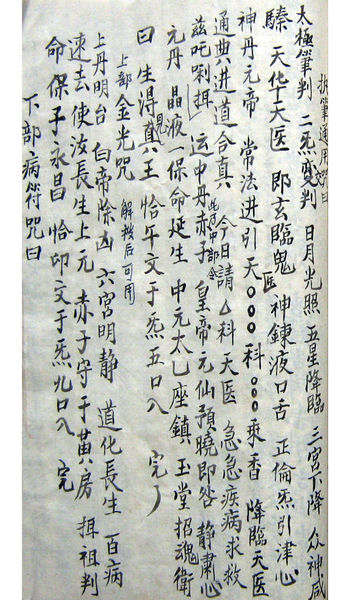 执筆通用咒曰
太極筆判 二炁變判 日月光照 五星降臨 三宮下降 众神咸
臻 天华十大医 即玄臨鬼医 神鍊液口舌 正倫炁引津心
神丹元帝 常法进引天○○○科○○○乘香 降臨天医
通典进道合真 今日請△科天医 急急疾病求救
兹吒唎挕 運中丹赤子 此乃中部令 皇帝元仙預曉即咎 静肅心
元丹 晶液一保命延生 中元太乙座鎮 玉堂招魂衛
曰 生得見真六王 恰午文于炁五口八 完了
上部金光咒 解穢后可用
上丹明台 白帝除凶 六宮明静 道化長生 百病
速去使汝長生上元 赤子守于黄房 挕祖判
命保子永昌 恰卬文于炁九口八 完
下部病符咒曰